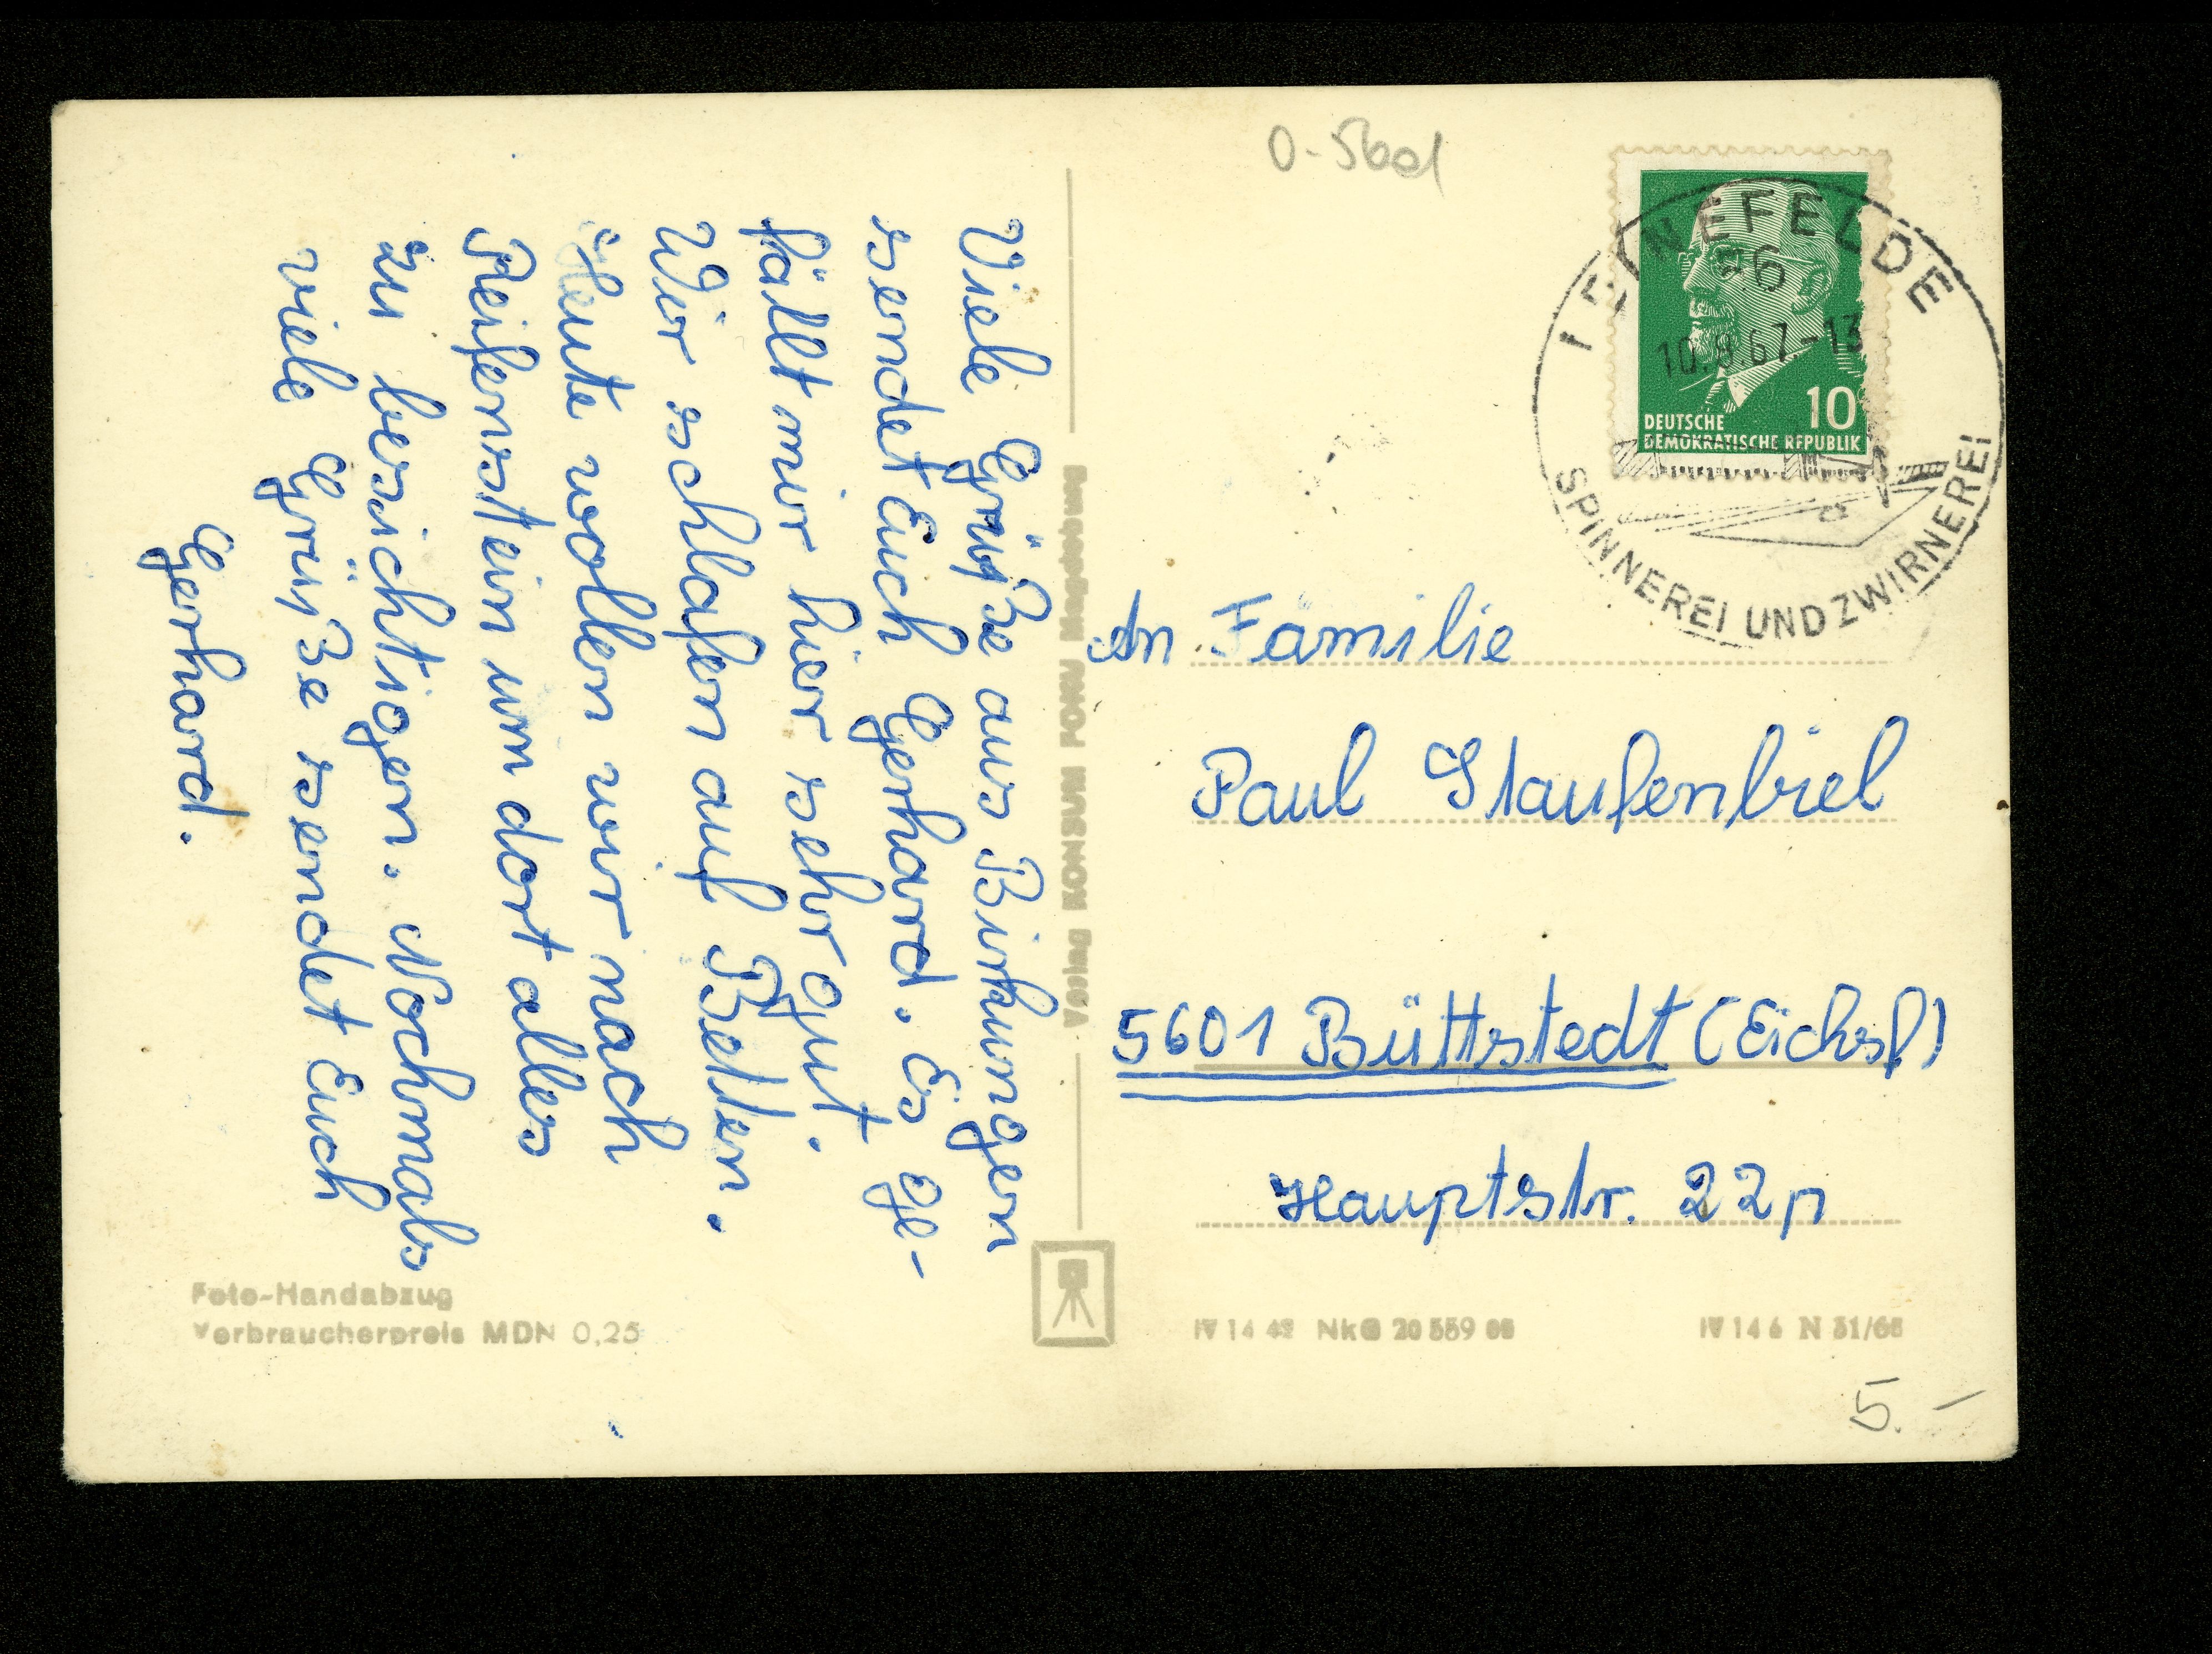 Viele Grüße aus Birkungen
sendet Euch Gerhard. Es ge-
fällt mir hier sehr gut.
Wir schlafen auf Betten.
Heute wollen wir nach
Reifenstein um dort alles
zu besichtigen. Nochmals
viele Grüße sendet Euch
Gerhard.
Foto-Handabzug
Verbraucherpreis MDN 0,25
Verlag KONSUM FOKU Magdeburg
0-5601
LEINEFELDE
10.8.67-13
SPINNEREI UND ZWIRNEREI
10
DEUTSCHE
DEMOKRATISCHE REPUBLIK
An Familie
Paul Staufenbiel
5601 Büttstedt (Eichsf)
Hauptstr. 22
IV 14 6 N 31/65
5.-